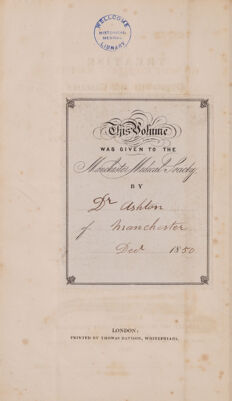 WELLCOME
HISTORICAL
MEDICAL
LIBRARY
This Volume
WAS GIVEN TO THE
Manchester Medical Society
BY
Dr Ashton
of Manchester
Decr 1850
LONDON:
PRINTED BY THOMAS DAVISON, WHITEFRIARS.